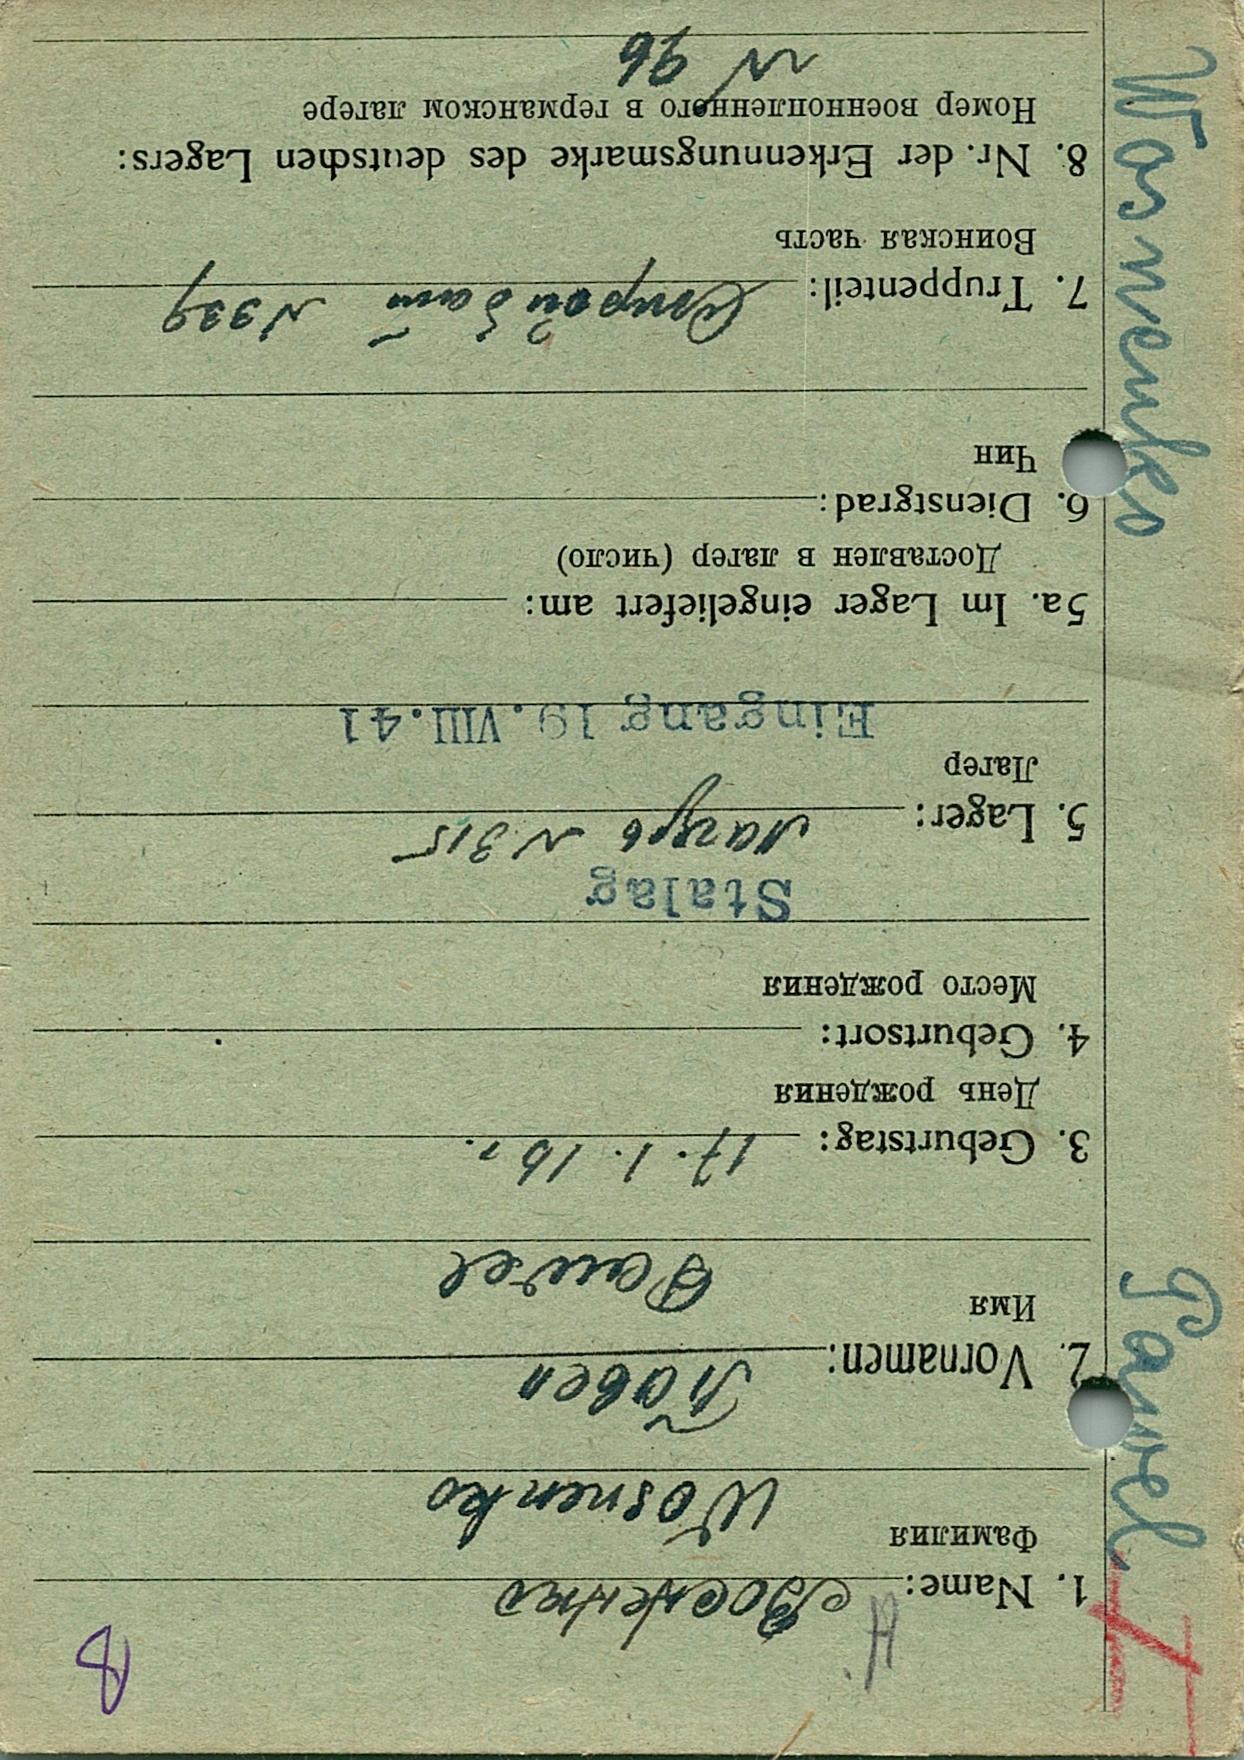 8
1. Name: Восненко
Фамилия
Wosnenko
2. Vornamen: Павел
Имя
Pawel
3. Geburtstag: 17.1.16 г.
День рождения
4. Geburtsort:
Место рождения
Stalag
5. Lager: Лагерь N 315
Лагерь
Eingang 19.VIII.41
5a. Im Lager eingeliefert am:
Доставлен в лагерь (число)
6. Dienstgrad:
Чин
7. Truppenteil: Строй бат N 339
Воинская часть
8. Nr. der Erkennungsmarke des deutschen Lagers:
Номер военнопленного в германском лагере
N 96
Wosnenko
Pawel